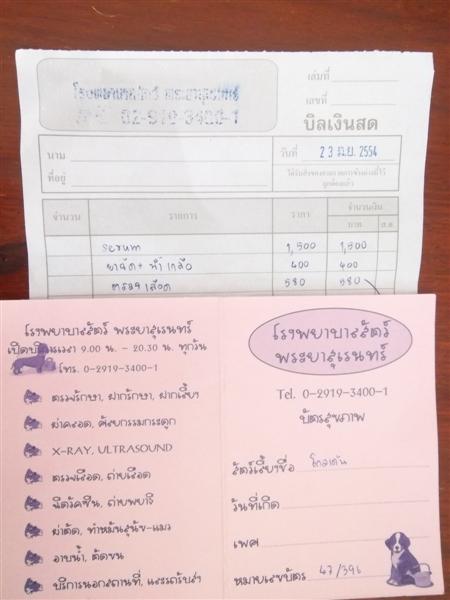 โรงพยาบาลสัตว์ พระยาสุเรนทร์
โทร. 02-919-3400-1
เล่มที่
เลขที่
บิลเงินสด
นาม
ที่อยู่
วันที่ 23 มิ.ย. 2554
ได้รับสิ่งของตามรายการข้างล่างนี้ไว้
ถูกต้องแล้ว
จำนวน รายการ ราคา จำนวนเงิน
บาท ส.ต.
serum 1,500 1,500
ยาฉีด+น้ำเกลือ 400 400
ตรวจเลือด 580 580
โรงพยาบาลสัตว์ พระยาสุเรนทร์
เปิดบริการเวลา 9.00 น. - 20.30 น. ทุกวัน
โทร. 0-2919-3400-1
ตรวจรักษา, ฝากรักษา, ฝากเลี้ยง
ผ่าคลอด, ศัลยกรรมกระดูก
X-RAY, ULTRASOUND
ตรวจเลือด, ถ่ายเลือด
ฉีดวัคซีน, ถ่ายพยาธิ
ผ่าตัด, ทำหมันสุนัข-แมว
อาบน้ำ, ตัดขน
บริการนอกสถานที่, และรถรับส่ง
โรงพยาบาลสัตว์
พระยาสุเรนทร์
Tel. 0-2919-3400-1
บัตรสุขภาพ
สัตว์เลี้ยงชื่อ โกลเด้น
วันที่เกิด
เพศ
หมายเลขบัตร 47/396